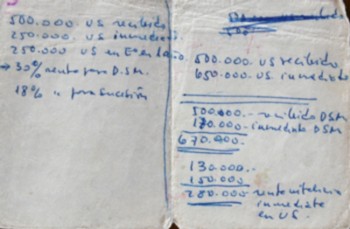 500.000. US recibido
250.000 US inmediato
250.000 US en
→ 30% para D.S.M.
18% " para Sucesión
500.000. US recibido
650.000. US inmediato
500.000.- recibido DSM
170.000- inmediato DSM
670.000.
130.000.-
150.000
280.000 renta vitalicia
inmediata
en US.